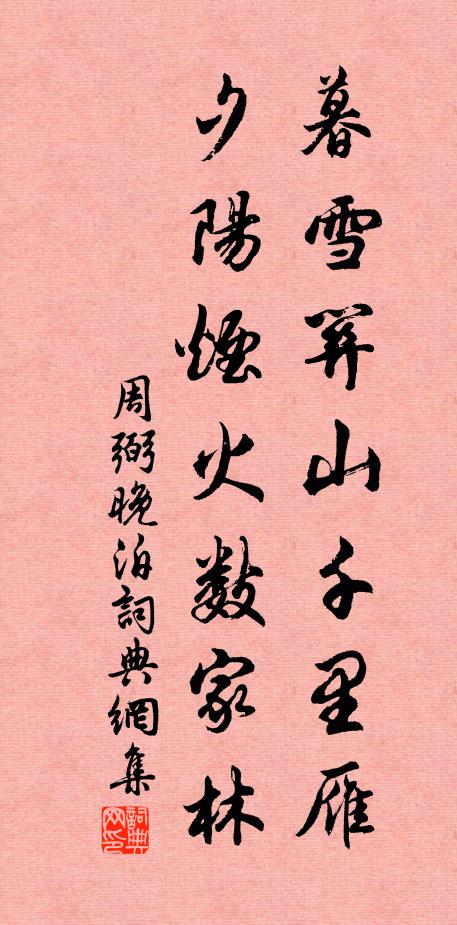 暮雪關山千里雁
夕陽煙火數家林
周弼晚泊詞典網集
詞典
网印